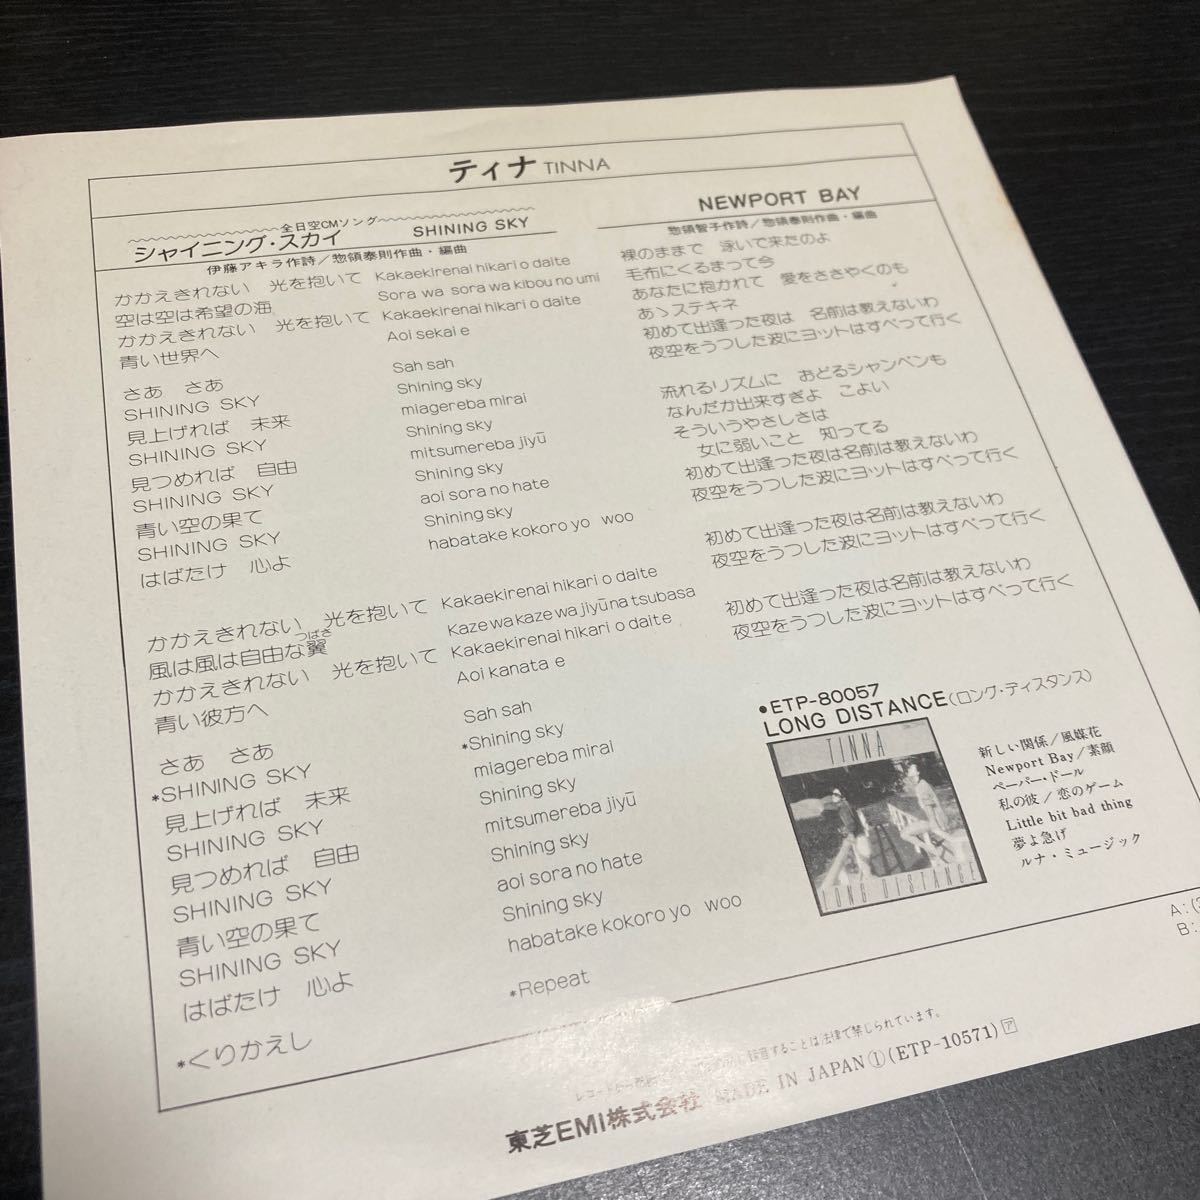 ティナ TINNA
全日空CMソング
シャイニング・スカイ SHINING SKY
伊藤アキラ作詩／惣領泰則作曲・編曲
かかえきれない 光を抱いて
空は空は希望の海
かかえきれない 光を抱いて
青い世界へ
さあ さあ
SHINING SKY
見上げれば 未来
SHINING SKY
見つめれば 自由
SHINING SKY
青い空の果て
SHINING SKY
はばたけ 心よ
かかえきれない 光を抱いて
風は風は自由な翼
つばさ
かかえきれない 光を抱いて
青い彼方へ
さあ さあ
*SHINING SKY
見上げれば 未来
SHINING SKY
見つめれば 自由
SHINING SKY
青い空の果て
SHINING SKY
はばたけ 心よ
*くりかえし
Kakaekirenai hikari o daite
Sora wa sora wa kibou no umi
Kakaekirenai hikari o daite
Aoi sekai e
Sah sah
Shining sky
miagereba mirai
Shining sky
mitsumereba jiyū
Shining sky
aoi sora no hate
Shining sky
habatake kokoro yo woo
Kakaekirenai hikari o daite
Kaze wa kaze wa jiyūna tsubasa
Kakaekirenai hikari o daite
Aoi kanata e
Sah sah
*Shining sky
miagereba mirai
Shining sky
mitsumereba jiyū
Shining sky
aoi sora no hate
Shining sky
habatake kokoro yo woo
*Repeat
NEWPORT BAY
惣領智子作詩／惣領泰則作曲・編曲
裸のままで 泳いで来たのよ
毛布にくるまって今
あなたに抱かれて 愛をささやくのも
あゝステキネ
初めて出逢った夜は 名前は教えないわ
夜空をうつした波にヨットはすべって行く
流れるリズムに おどるシャンペンも
なんだか出来すぎよ こよい
そういうやさしさは
女に弱いこと 知ってる
初めて出逢った夜は名前は教えないわ
夜空をうつした波にヨットはすべって行く
初めて出逢った夜は名前は教えないわ
夜空をうつした波にヨットはすべって行く
初めて出逢った夜は名前は教えないわ
夜空をうつした波にヨットはすべって行く
●ETP-80057
LONG DISTANCE(ロング・ディスタンス)
TINNA
LONG DISTANCE
新しい関係／風媒花
Newport Bay／素顔
ペーパー・ドール
私の彼／恋のゲーム
Little bit bad thing
夢よ急げ
ルナ・ミュージック
A:(3
B:
録音することは法律で禁じられています。
東芝EMI株式会社 MADE IN JAPAN①(ETP-10571)ア